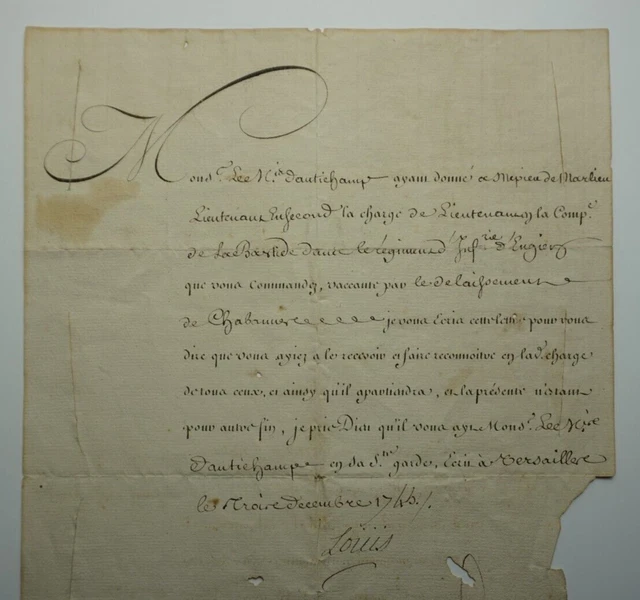 Mons.r Le M.is d'autichamp ayant donné a Mepieu de Marlieu
Lieutenant En second la charge de Lieutenant en la Comp.e
de La Bastide dans le régiment d'Infrie d'Engien
que vous commandez, vaccante par le delaissement
de Chabrunere je vous Ecris cette lettre pour vous
dire que vous ayiez a le recevoir et faire reconnoitre en lad.e charge
de tous ceux, et ainsy qu'il apartiendra, et la présente n'estant
pour autre fin, je prie Dieu qu'il vous ayt Mons.r Le
d'autichamp en sa S.te garde, Ecrit à Versailles
le Trois decembre 174
Loüis